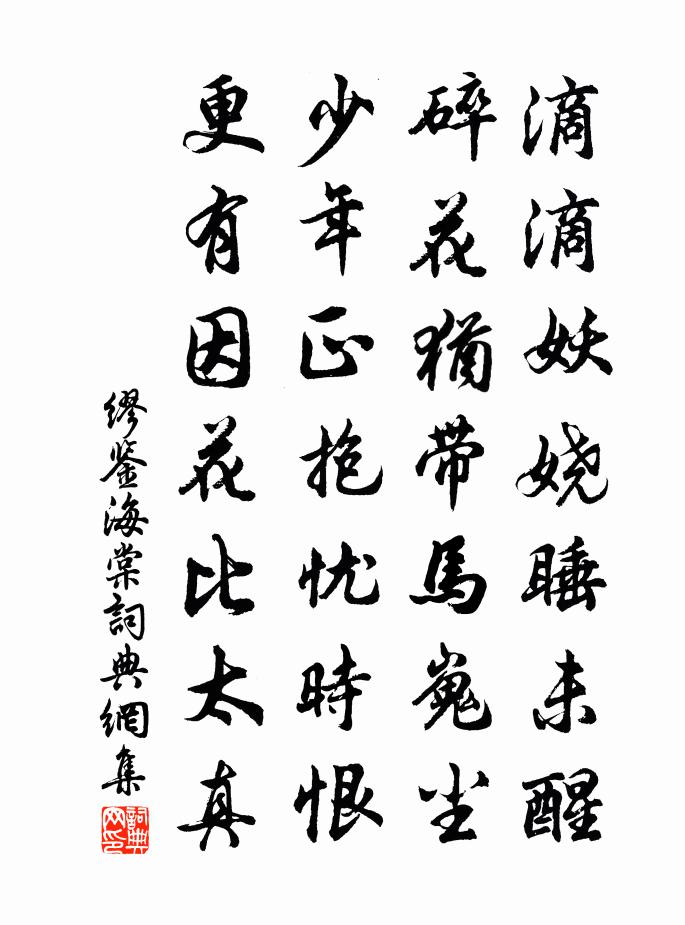 滴滴妖娆睡未醒
碎花犹带馬嵬尘
少年正抱忧時恨
更有因花比太真
缪鉴海棠詞典網集
詞典网印